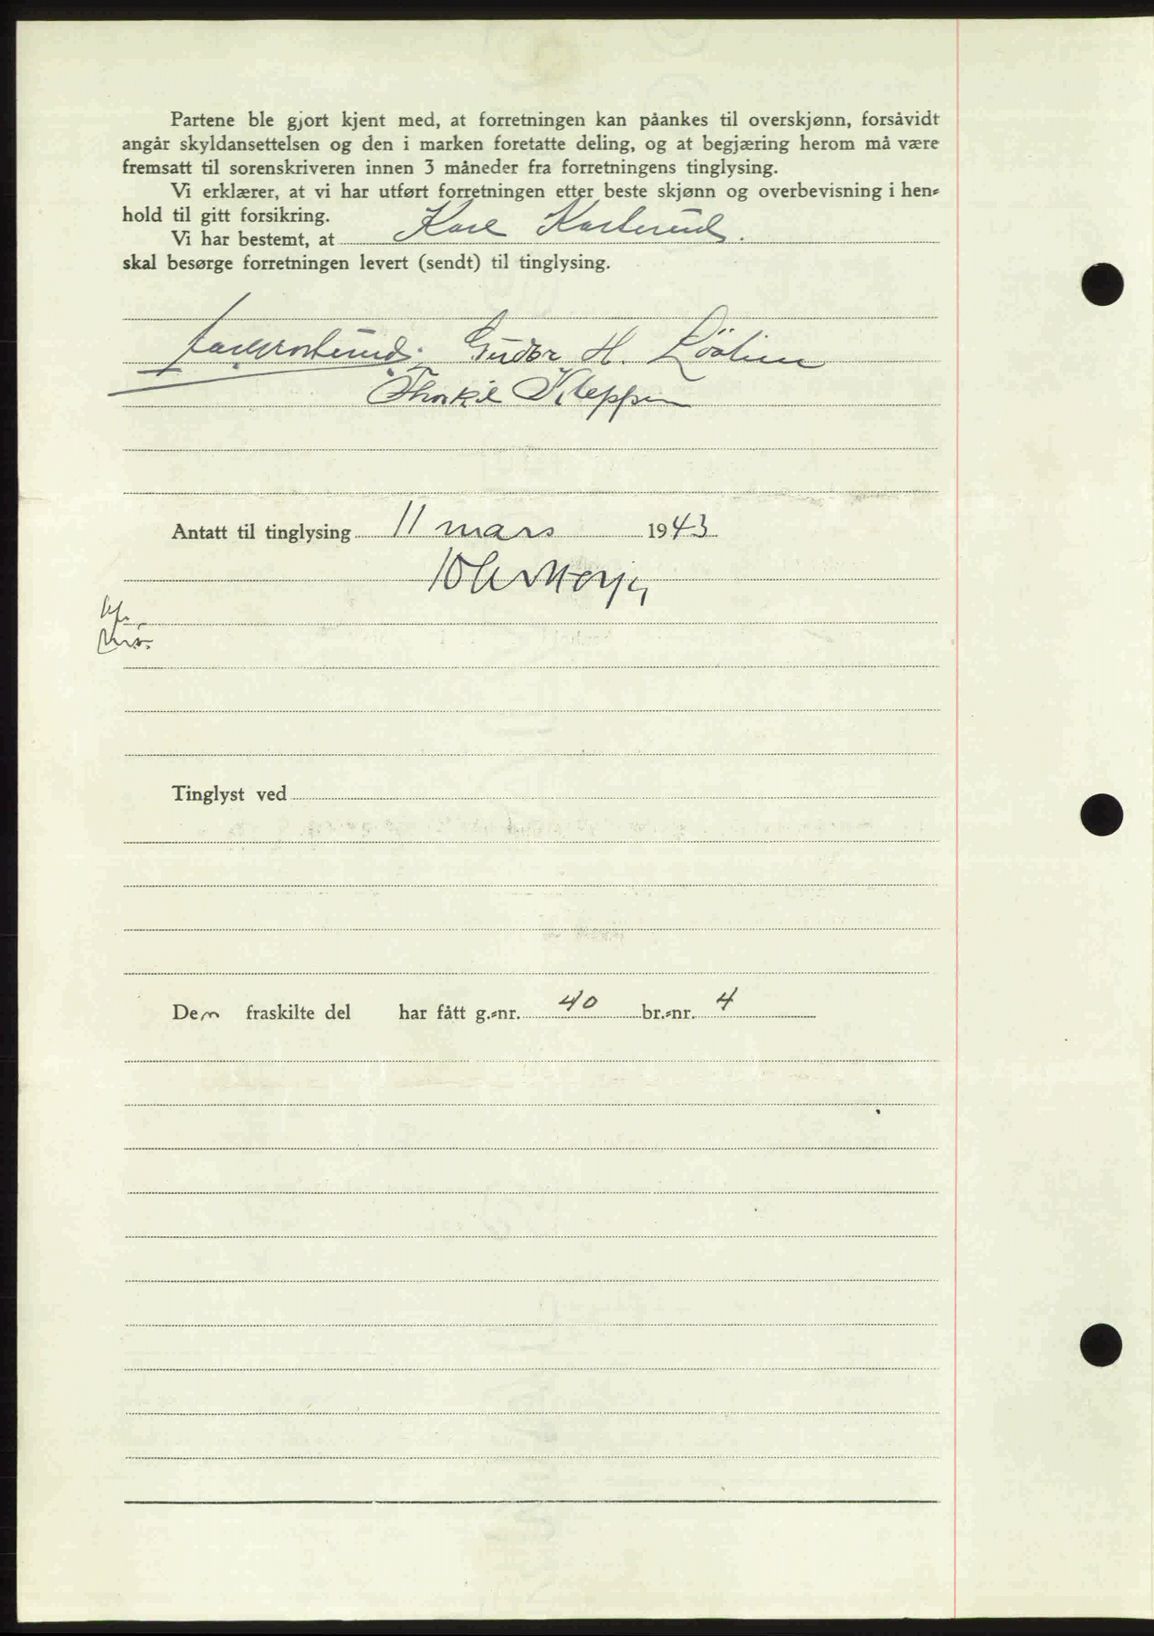 Partene ble gjort kjent med, at forretningen kan påankes til overskjønn, forsåvidt
angår skyldansettelsen og den i marken foretatte deling, og at begjæring herom må være
fremsatt til sorenskriveren innen 3 måneder fra forretningens tinglysing.
Vi erklærer, at vi har utført forretningen etter beste skjønn og overbevisning i hen-
hold til gitt forsikring.
Vi har bestemt, at Kare
skal besørge forretningen levert (sendt) til tinglysing.
Gudbr H.
Thorkil Kleppen
Antatt til tinglysing 11 mars 1943
Tinglyst ved
Den fraskilte del har fått g.-nr. 40 br.-nr. 4